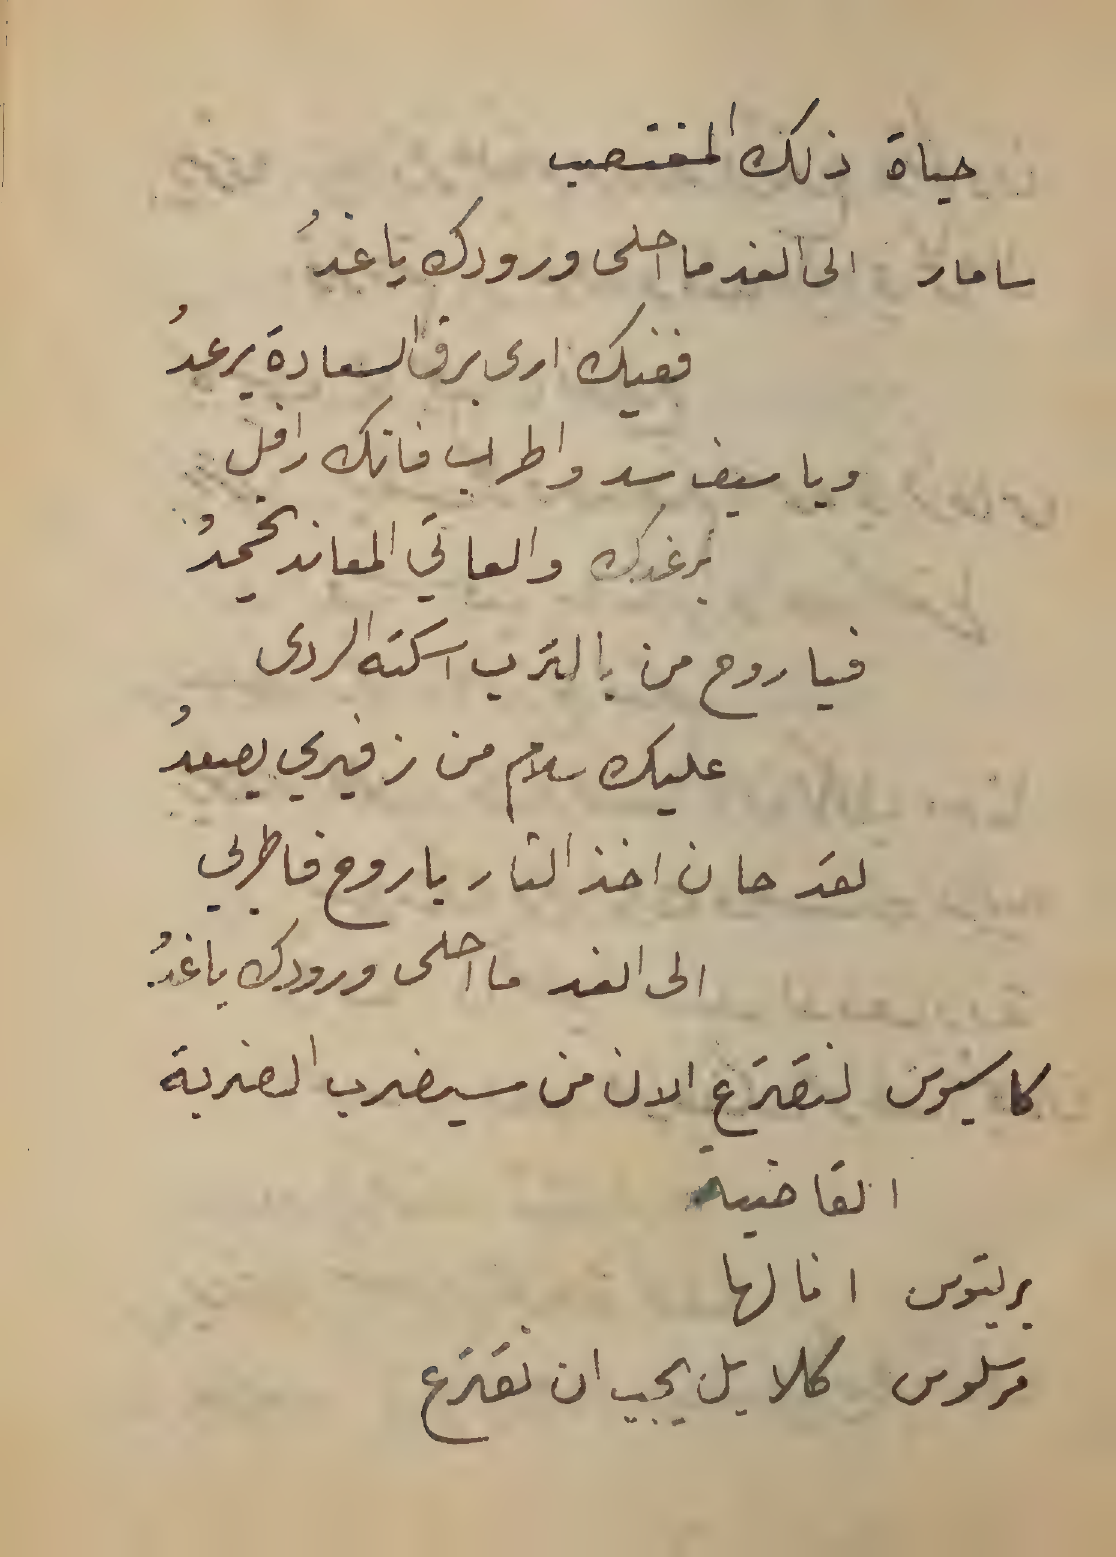 حياة ذلك المغتصب
سامار الى الغد ما احلى ورودك يا غدُ
ففيك ارى برق السعادة يرعدُ
ويا سيف سد واطرب فانك رافل
برغدك والعاتي المعاند يخمدُ
فيا روح من بالترب اسكنه الردى
عليك سلام من زفيري يصعدُ
لقد حان اخذ الثار يا روح فاطربي
الى الغد ما احلى ورودك ياغدُ
كاسيوس لنقترع الان من سيضرب الضربة
القاضية
بريتوس انا لها
مرسلوس كلا بل يجب ان نقترع